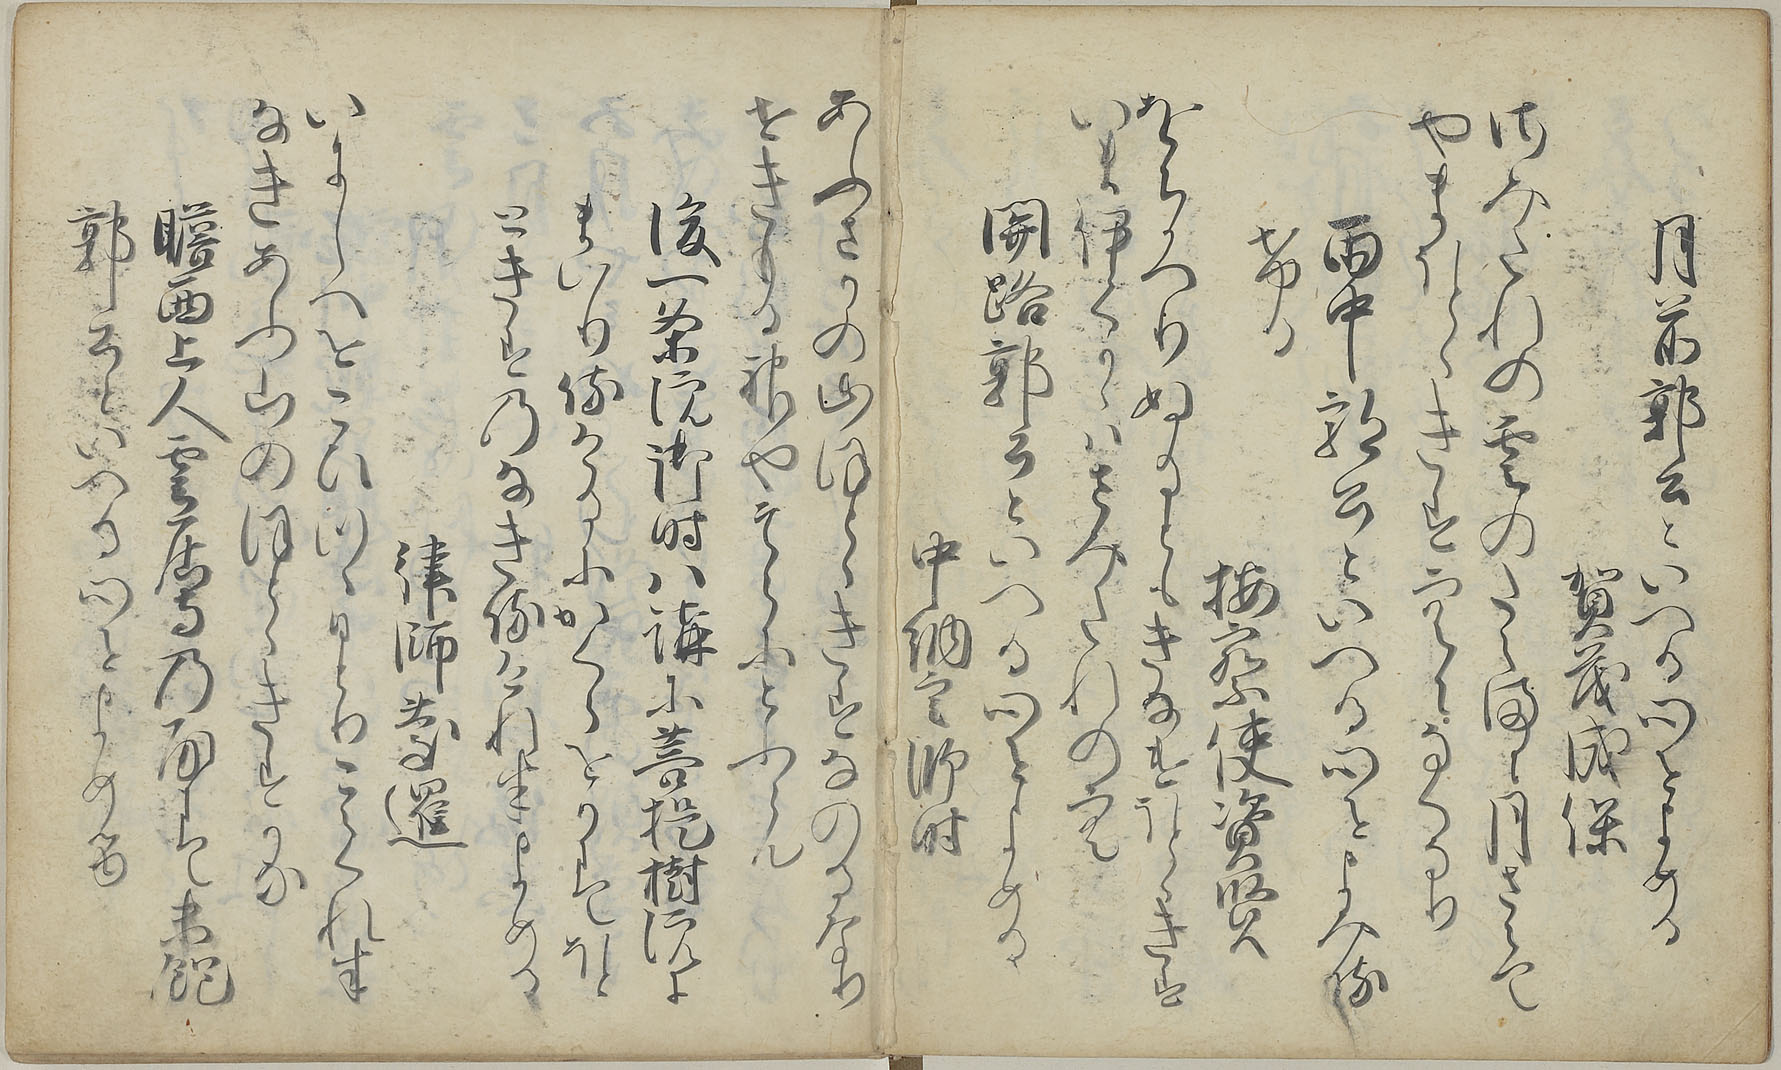 月前郭公といへる心をよめる
賀茂成保
さみたれの雲のはれまに月さえて
やまほとゝきすそらになくなり
雨中郭公といへる心をよみ侍
ける
按察使資賢
をちかへりぬるともきなけほとゝきす
いまいくかゝはさみたれの空
関路郭公といへる心をよめる
中納言師時
あふさかの山ほとゝきすなのるなり
せきもる神やそらにとふらん
後一条院御時八講に菩提樹院に
まいり侍けるにかくらをかにてほと
ときすのなき侍けれはよめる
律師慶暹
いにしへをこひつゝひとりこえくれは
なきあふ山のほとゝきすかな
瞻西上人雲居寺の房にて未飽
郭公といへる心をよめる